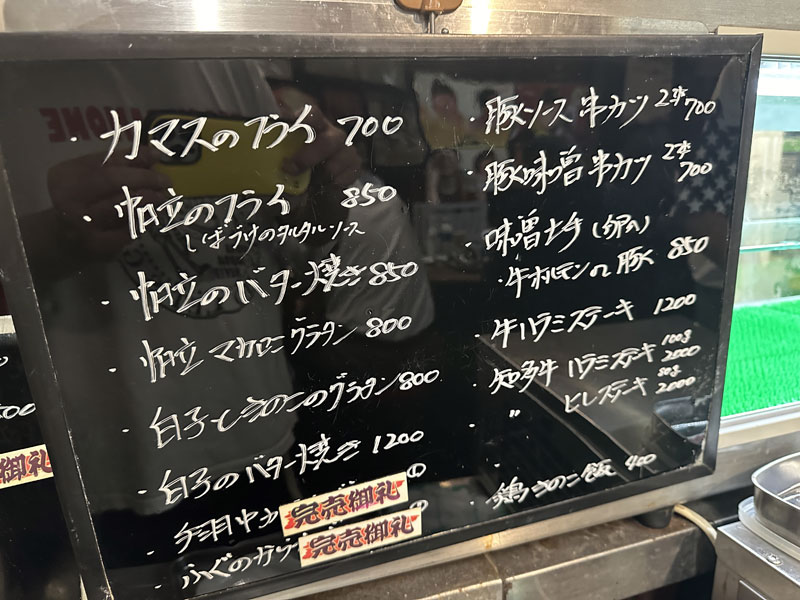 ・カマスのフライ 700
・帆立のフライ 850
しばづけのタルタルソース
・帆立のバター焼き 850
・帆立マカロニグラタン 800
・白子ときのこのグラタン 800
・白子のバター焼き 1200
完売御礼
・ふぐの
完売御礼
・豚ソース串カツ 2本 700
・豚味噌串カツ 2本 700
・味噌
・牛ホルモン 豚 850
・牛ハラミステーキ 1200
・知多牛ハラミステーキ 100g 2000
・ 〃 ヒレステーキ 80g 2000
・鶏きのこ飯 400
御礼